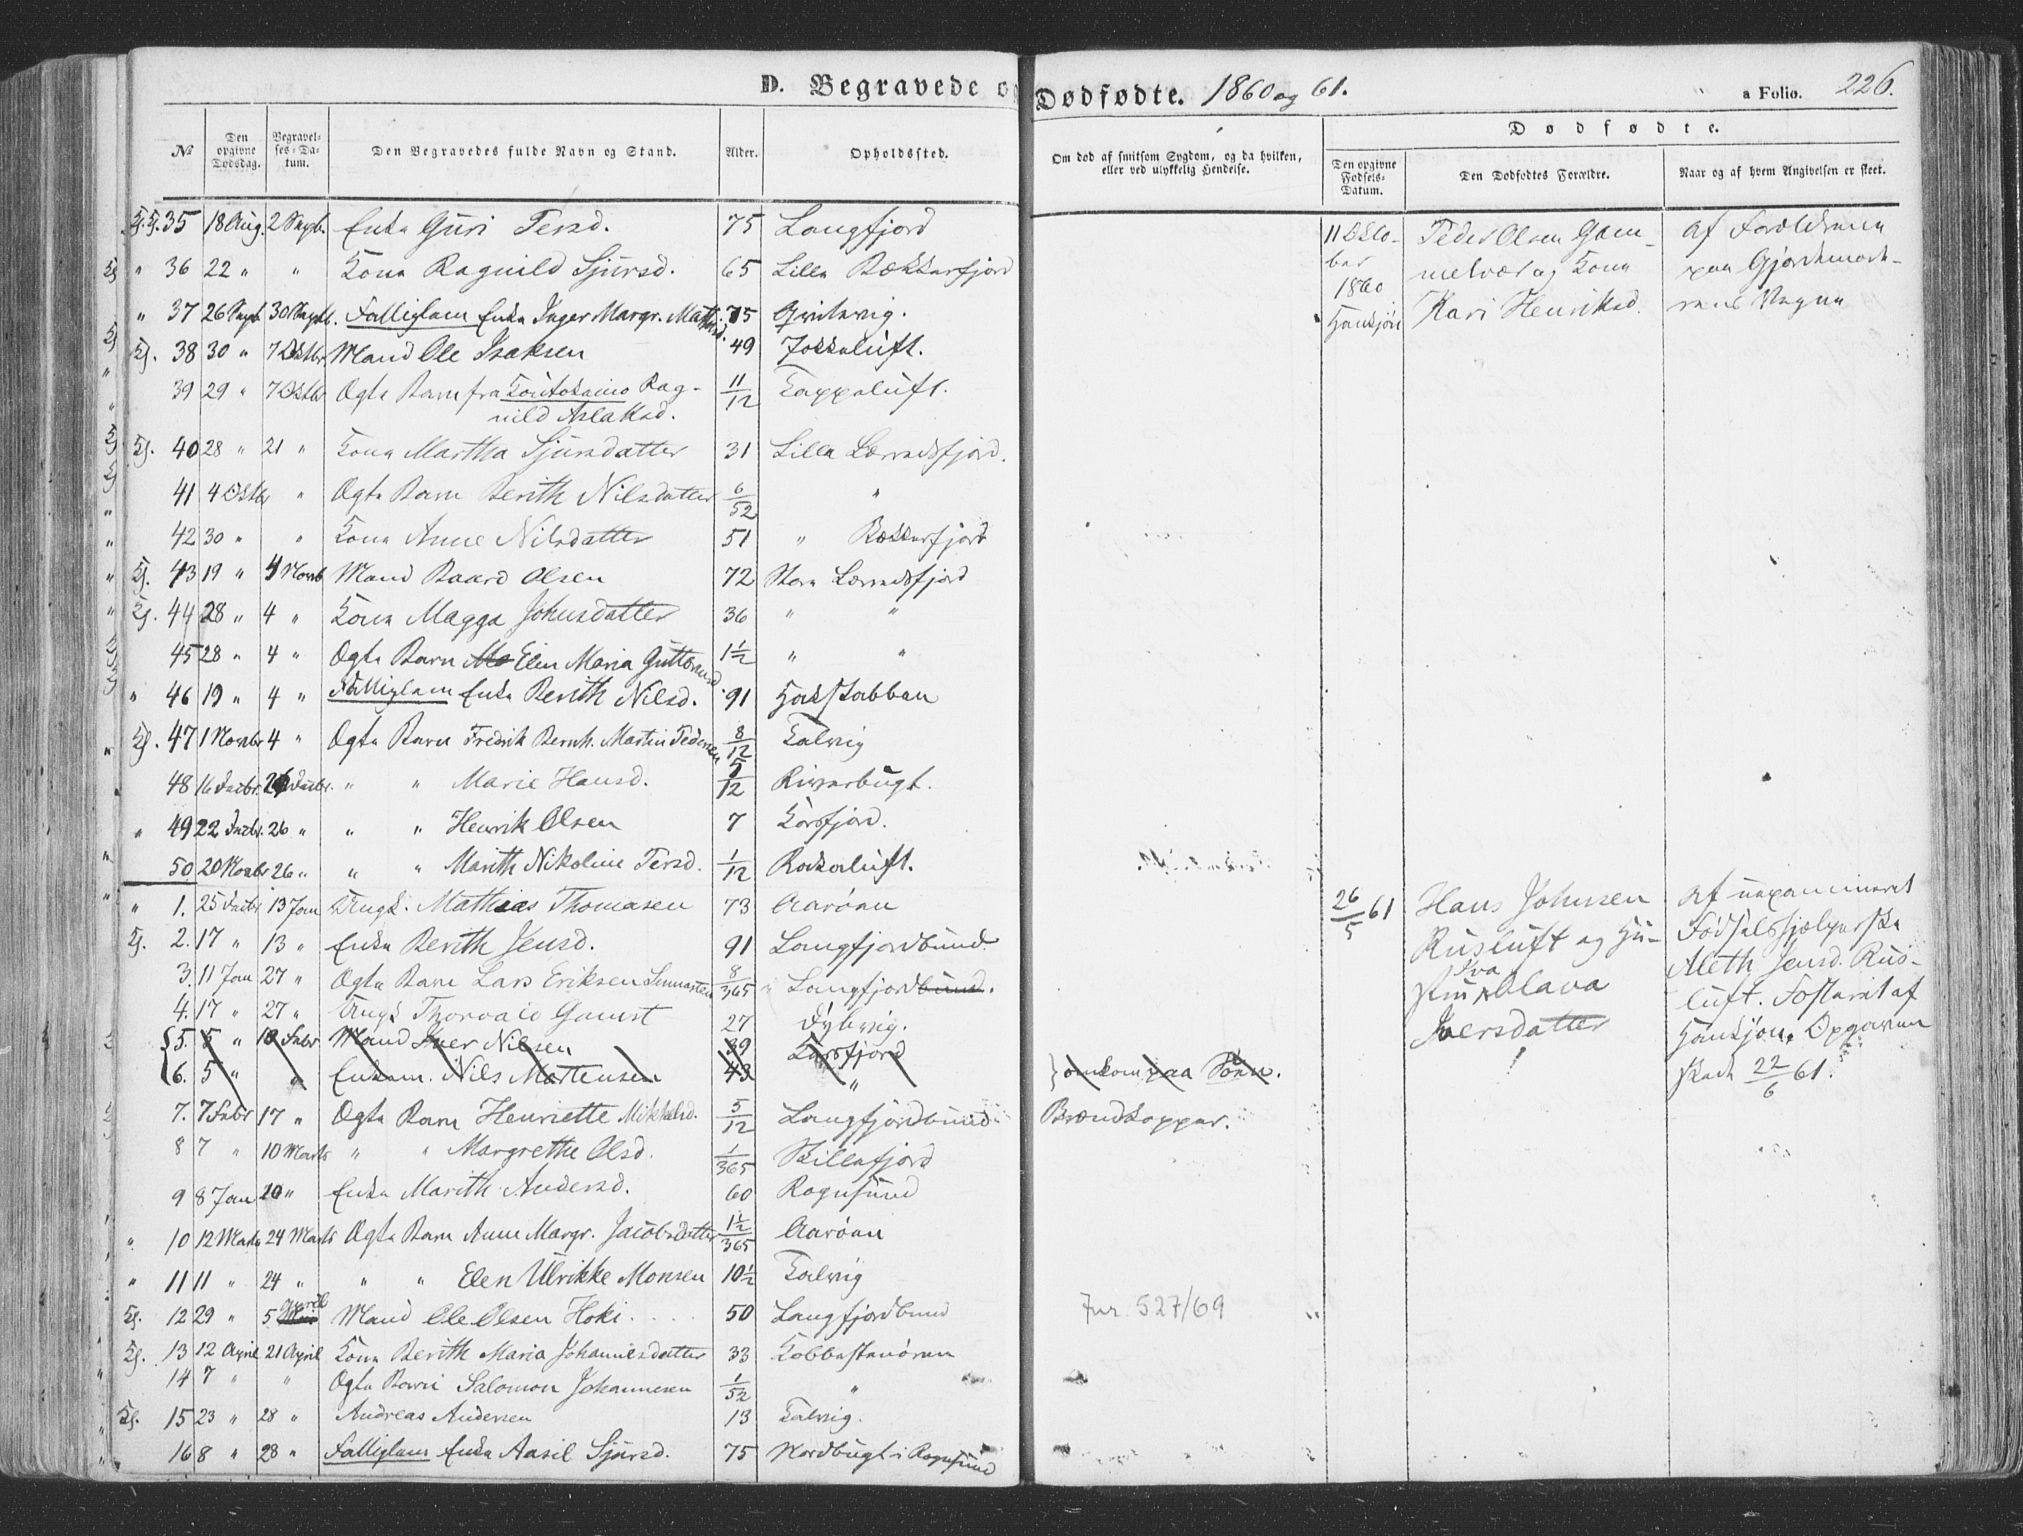 D. Begravede og Dødfødte. 1860 og 61. a Folio. 226.
Dødfødte.
No Den opgivne Dødsdag. Begravelses-Datum. Den Begravedes fulde Navn og Stand. Alder. Opholdssted. Om død af smitsom Sygdom, og da hvilken, eller ved ulykkelig Hendelse. Den opgivne Fødsels-Datum. Den Dødfødtes Forældre. Naar og af hvem Angivelsen er skeet.
35 18 Aug. 2 Septb. Enke Guri Persd. 75 Langfjord
" 36 22 " " Kone Ragnild Sjursd. 65 Lille Bekkerfjord
" 37 26 Septb 30 Septb. Fattiglem Enke Inger Margr. Mathisd. 75 Qvitevig.
Kj. 38 30 " 7 Oktbr Mand Ole Isaksen 49 Jokkeluft.
39 29 " 7 Oktbr Ægte Barn fra Koutokeino Rag-
nild Aslaksd. 11/12 Tappeluft.
Kj. 40 28 " 21 " Kone Martha Sjursdatter 31 Lille Lerredsfjord.
41 4 Oktbr " Ægte Barn Berith Nilsdatter 6/52 "
42 30 " " Kone Anne Nilsdatter 51 " Bekkerfjord
Kj. 43 19 " 4 Novb Mand Baard Olsen 72 Store Lerredsfjord
Kj. 44 28 " 4 " Kone Magga Johnsdatter 36 " "
45 28 " 4 " Ægte Barn Elen Maria Guttormsd 1 1/2 " "
" 46 19 " 4 " Fattiglem Enke Berith Nilsd. 91 Hakstabben
Kj. 47 1 Novbr 4 " Ægte Barn Fredrik Bernh. Martin Pedersen 8/12 Talvig
48 16 Decbr. 26 Decbr. " " Marie Hansd. 5/12 Riverbugt.
" 49 22 Decbr. 26 " " " Henrik Olsen 7 Korsfjord.
50 20 Novbr 26 " " " Marith Nikoline Persd. 1/12 Rakkeluft.
" 1. 25 Decbr 13 Jan Ungk. Mathias Thomasen 73 Aarøen
Kj. 2. 17 " 13 " Enke Berith Jensd. 91 Langfjordbund
3. 11 Jan 27 " Ægte Barn Lars Eriksen 8/365 Langfjordbund.
4. 17 " 27 " Ungk Thorvald Gamst 27 Dybvig.
5. 5 " 10 Febr Mand Iver Nilsen 39 Korsfjord
6. 5 " " Enkem. Nils Mortensen 43 " } omkom paa Søen.
7. 7 Febr 17 " Ægte Barn Henriette Mikkelsd. 5/12 Langfjordbund Brændkopper.
8 7 " 10 Marts " " Margrethe Olsd. 1/365 Skillefjord
9 8 Jan 20 " Enke Marith Andersd. 60 Rognsund
" 10 12 Marts 24 Marts Ægte Barn Anne Margr. Jacobsdatter 1 1/2/365 Aarøen
" 11 11 " 24 " " " Elen Ulrikke Monsen 10 1/2 Talvig
Kj. 12 29 " 5 April Mand Ole Olsen Hoki 50 Langfjordbund Jnr. 527/69
Kj. 13 12 April 21 April Kone Berith Maria Johannesdatter 33 Kobbestenøren
14 7 " " Ægte Barn Salomon Johannesen 1/52 "
Kj. 15 23 " 28 " Andreas Andersen 13 Talvig.
16 8 " 28 " Fattiglem Enke Aasil Sjursd. 75 Nordbugt i Rognsund
11 Okto-
ber
1860
Peder Olsen Gam-
melvær og Kone
Kari Henriksd.
Af Forældrene
paa Gjordemode-
rens Vegne
26/5 61
Hans Johnsen
Rusluft og Hu-
stru Eva Olava
Iversdatter
Af uexamineret
Fødselshjelperske
Aleth Jensd. Rus-
luft. Fosteret af
Hankjøn. Opgaven
skede 22/6 61.